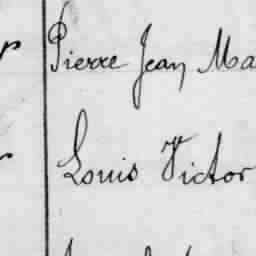 Pierre Jean Ma
Louis Victor